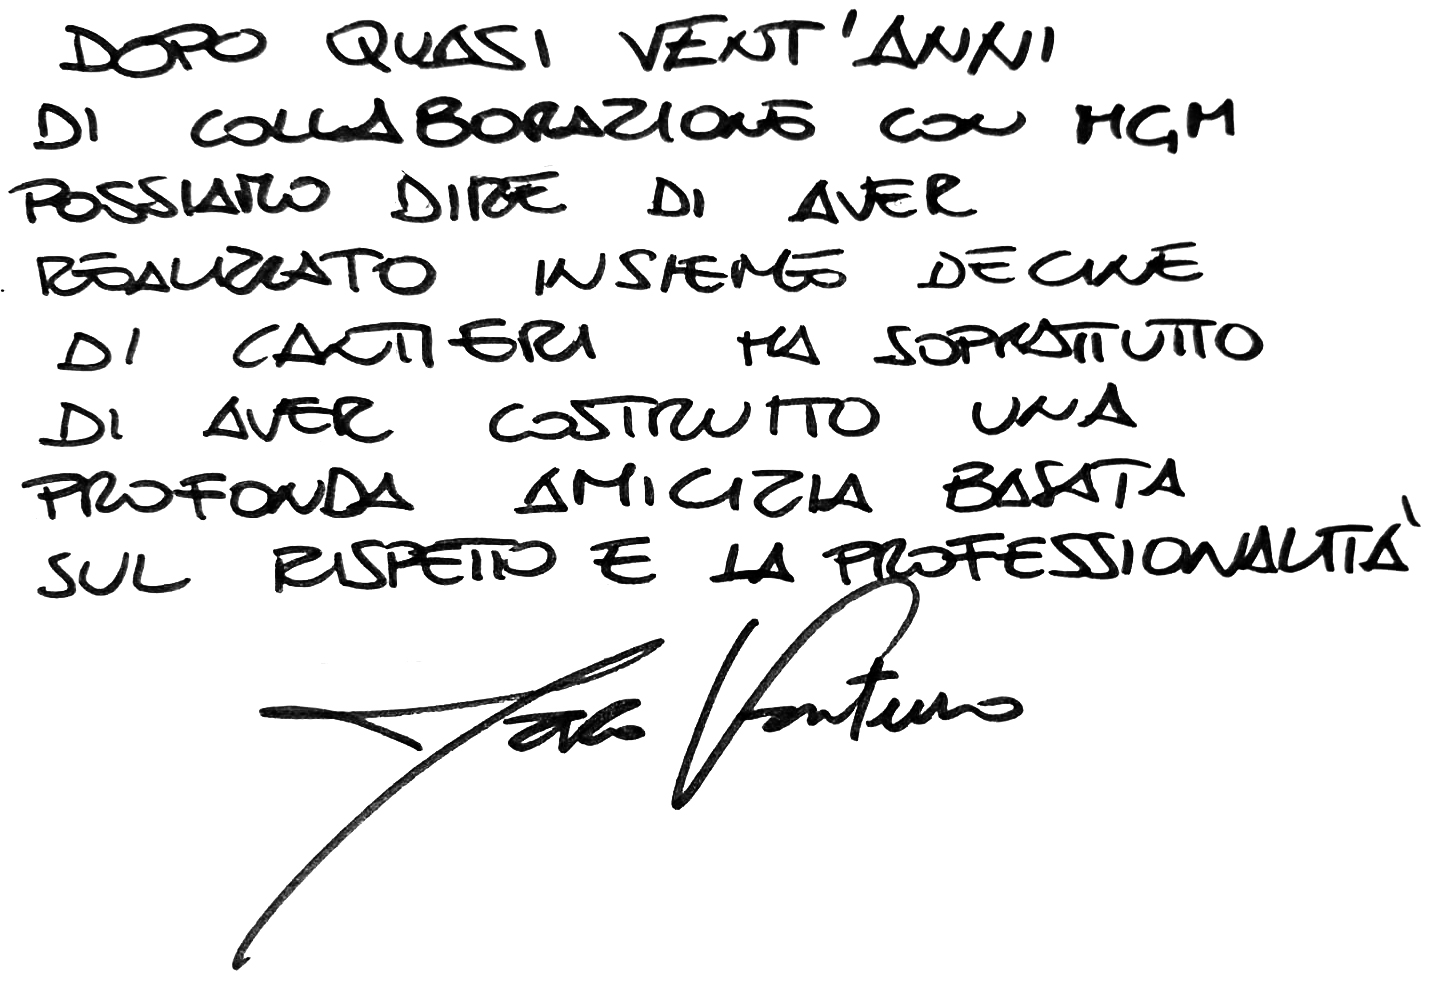 DOPO QUASI VENT'ANNI
DI COLLABORAZIONE CON MGM
POSSIAMO DIRE DI AVER
REALIZZATO INSIEME DECINE
DI CANTIERI MA SOPRATTUTTO
DI AVER COSTRUITO UNA
PROFONDA AMICIZIA BASATA
SUL RISPETTO E LA PROFESSIONALITÀ